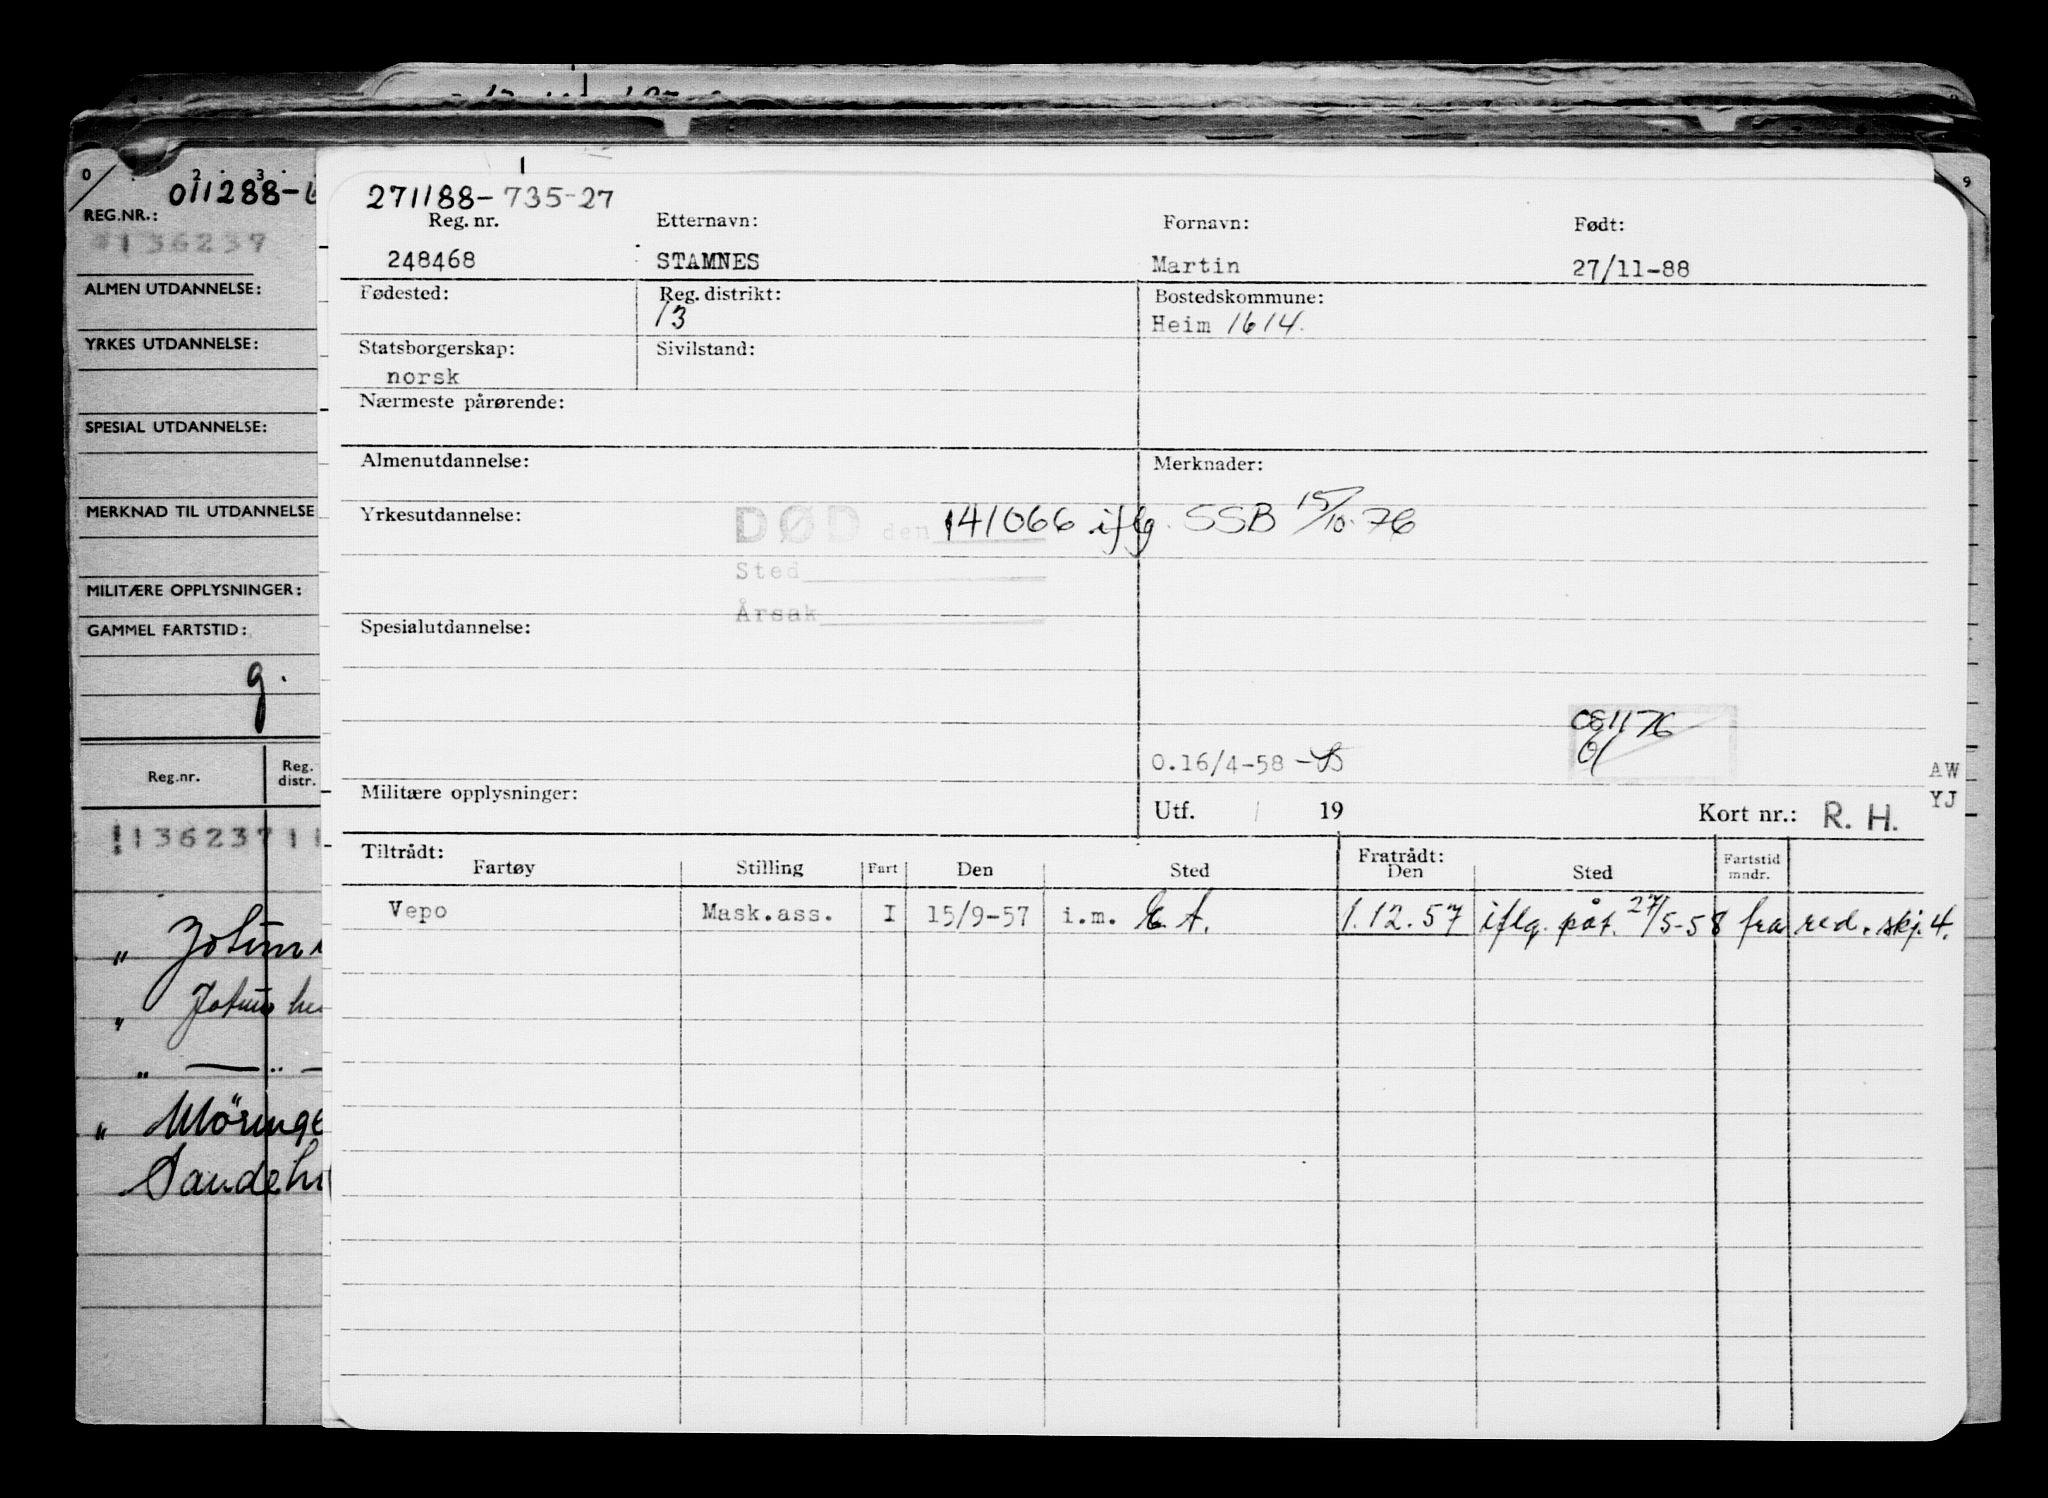 0 2 3
011288-
REG.NR.:
136237
ALMEN UTDANNELSE:
YRKES UTDANNELSE:
SPESIAL UTDANNELSE:
MERKNAD TIL UTDANNELSE
MILITÆRE OPPLYSNINGER:
GAMMEL FARTSTID:
g.
Reg.nr. Reg. distr.
136237 11
" Jotun
" Jotun
" — " —
" Möringe
Sandeh
9
271188-735-27
Reg. nr. Etternavn: Fornavn: Født:
248468 STAMNES Martin 27/11-88
Fødested: Reg. distrikt: Bostedskommune:
13 Heim 1614.
Statsborgerskap: Sivilstand:
norsk
Nærmeste pårørende:
Almenutdannelse: Merknader:
Yrkesutdannelse: DØD den 141066 iflg. SSB 15/10-76
Sted
Årsak
Spesialutdannelse:
081176
O.16/4-58 -
AW
Militære opplysninger: Utf. / 19 Kort nr.: R. H.
YJ
Tiltrådt: Fratrådt: Fartstid
Fartøy Stilling Fart Den Sted Den Sted mndr.
Vepo Mask.ass. I 15/9-57 i.m. E.A. 1.12.57 iflg. påt. 27/5-58 fra red. skj. 4.